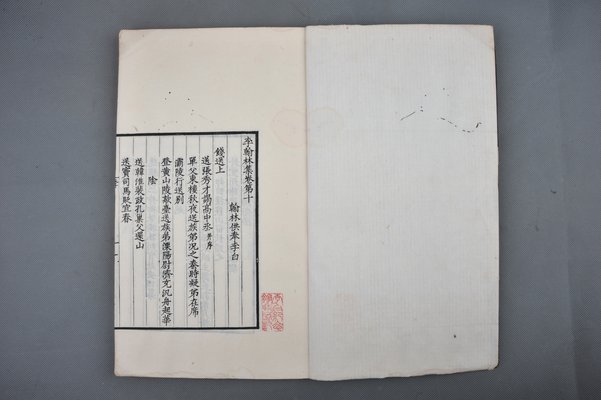 李翰林集卷第十
翰林供奉李白
餞送上
送張秀才謁高中丞并序
單父東樓秋夜送族弟況之秦時凝弟在席
灞陵行送別
登黃山陵歊臺送族弟溧陽尉濟充汎舟赴華
陰
送韓准裴政孔巢父還山
送竇司馬貶宜春